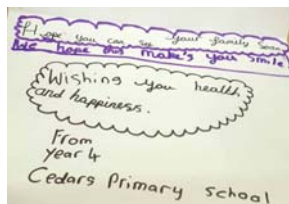 Hope you can see your family soon
We hope this make's you smile
Wishing you health
and happiness.
From
year 4
Cedars Primary School